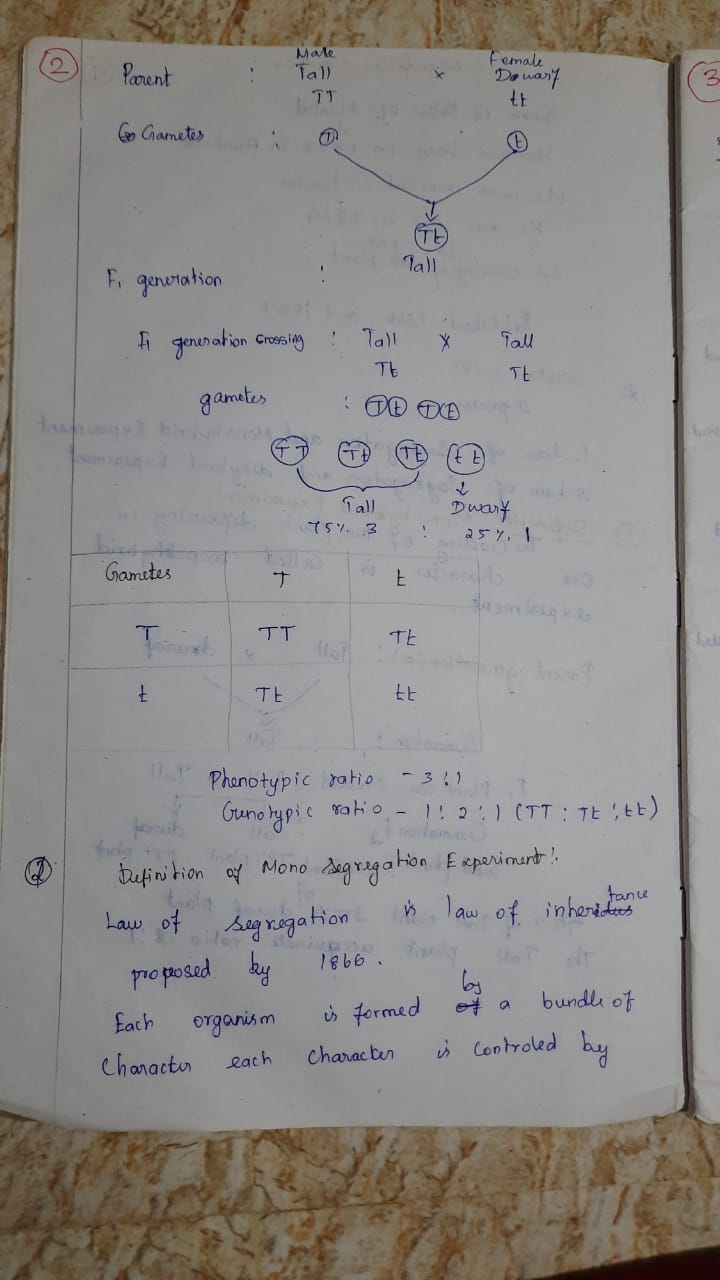 2
Male Female
Parent : Tall x Dowarf
TT tt
Gametes : T t
Tt
Tall
F1 generation :
F1 generation Crossing : Tall X Tall
Tt Tt
gametes : T t T t
TT Tt Tt tt
Tall Dwarf
75%. 3 : 25%. 1
Gametes T t
T TT Tt
t Tt tt
Phenotypic ratio - 3:1
Gunotypic ratio - 1:2:1 (TT : Tt : tt)
2 Definition of Mono Segregation Experiment:
Law of segregation is law of inheritance
proposed by 1866.
Each organism is formed by a bundle of
Character each character is controled by
3